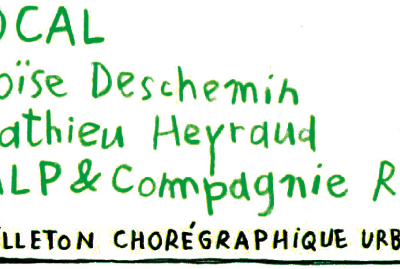 OCAL
oïse Deschemin
athieu Heyraud
ALP & Compagnie R
ILLETON CHORÉGRAPHIQUE URB